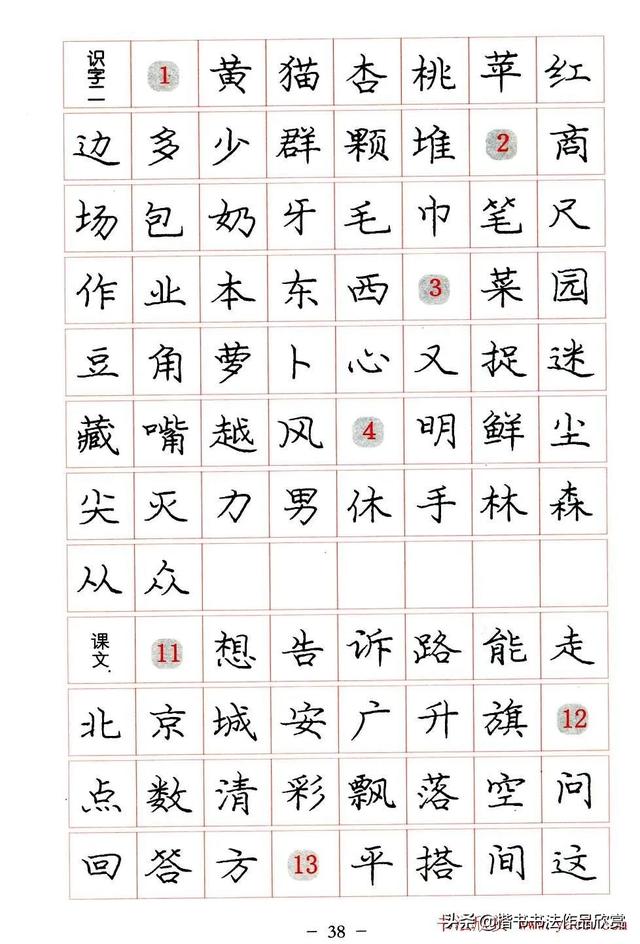 识字二 1 黄 猫 杏 桃 苹 红
边 多 少 群 颗 堆 2 商
场 包 奶 牙 毛 巾 笔 尺
作 业 本 东 西 3 菜 园
豆 角 萝 卜 心 又 捉 迷
藏 嘴 越 风 4 明 鲜 尘
尖 灭 力 男 休 手 林 森
从 众
课文 11 想 告 诉 路 能 走
北 京 城 安 广 升 旗 12
点 数 清 彩 飘 落 空 问
回 答 方 13 平 搭 间 这
- 38 -
头条@楷书书法作品欣赏